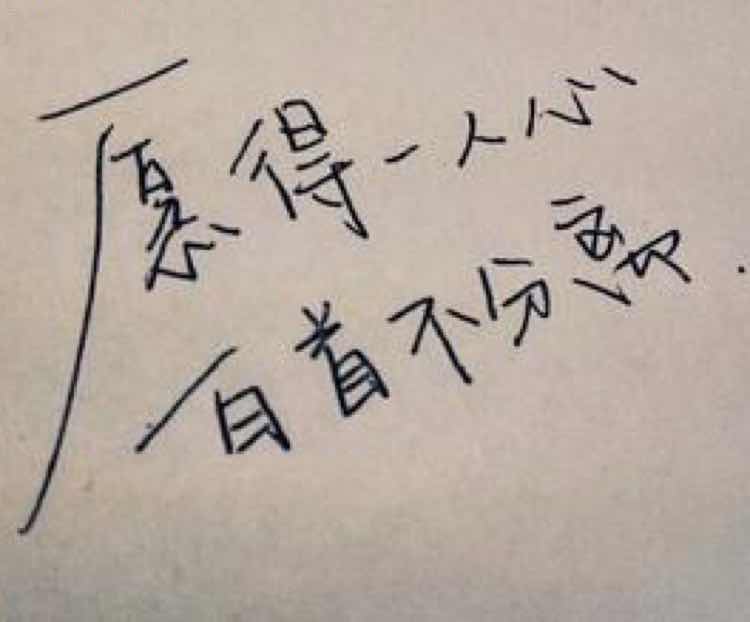 愿得一人心
白首不分离.